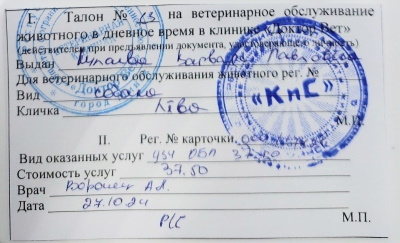 I. Талон № 63 на ветеринарное обслуживание
животного в дневное время в клинике «Доктор Вет»
(действителен при предъявлении документа, удостоверяющего личность)
Выдан Павловна
Для ветеринарного обслуживания животного рег. №
Вид собака
Кличка
М.П.
«КиС»
II. Рег. № карточки,
Вид оказанных услуг узи ОБП 37.80
Стоимость услуг 37.80
Врач А.А.
Дата 27.10.24
М.П.